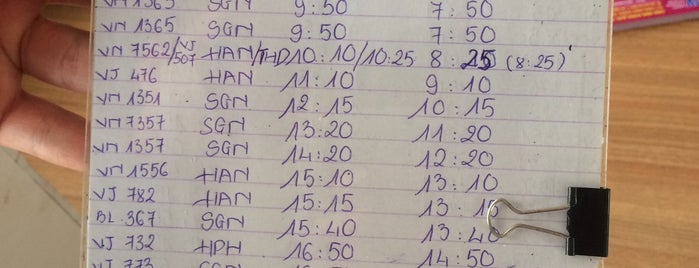 VN 1365 SGN 9:50 7:50
VN 1365 SGN 9:50 7:50
VN 7562/VJ 507 HAN/THD 10:10/10:25 8:25 (8:25)
VJ 476 HAN 11:10 9:10
VN 1351 SGN 12:15 10:15
VN 7357 SGN 13:20 11:20
VN 1357 SGN 14:20 12:20
VN 1556 HAN 15:10 13:10
VJ 782 HAN 15:15 13:15
BL 367 SGN 15:40 13:40
VJ 732 HPH 16:50 14:50
VJ 773 SGN 16:50